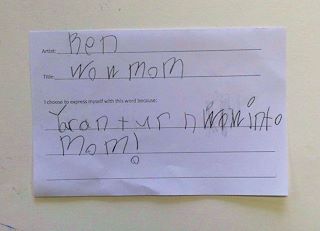 Artist: Ren
Title: wow mom
I choose to express myself with this word because:
turn wow into
mom!